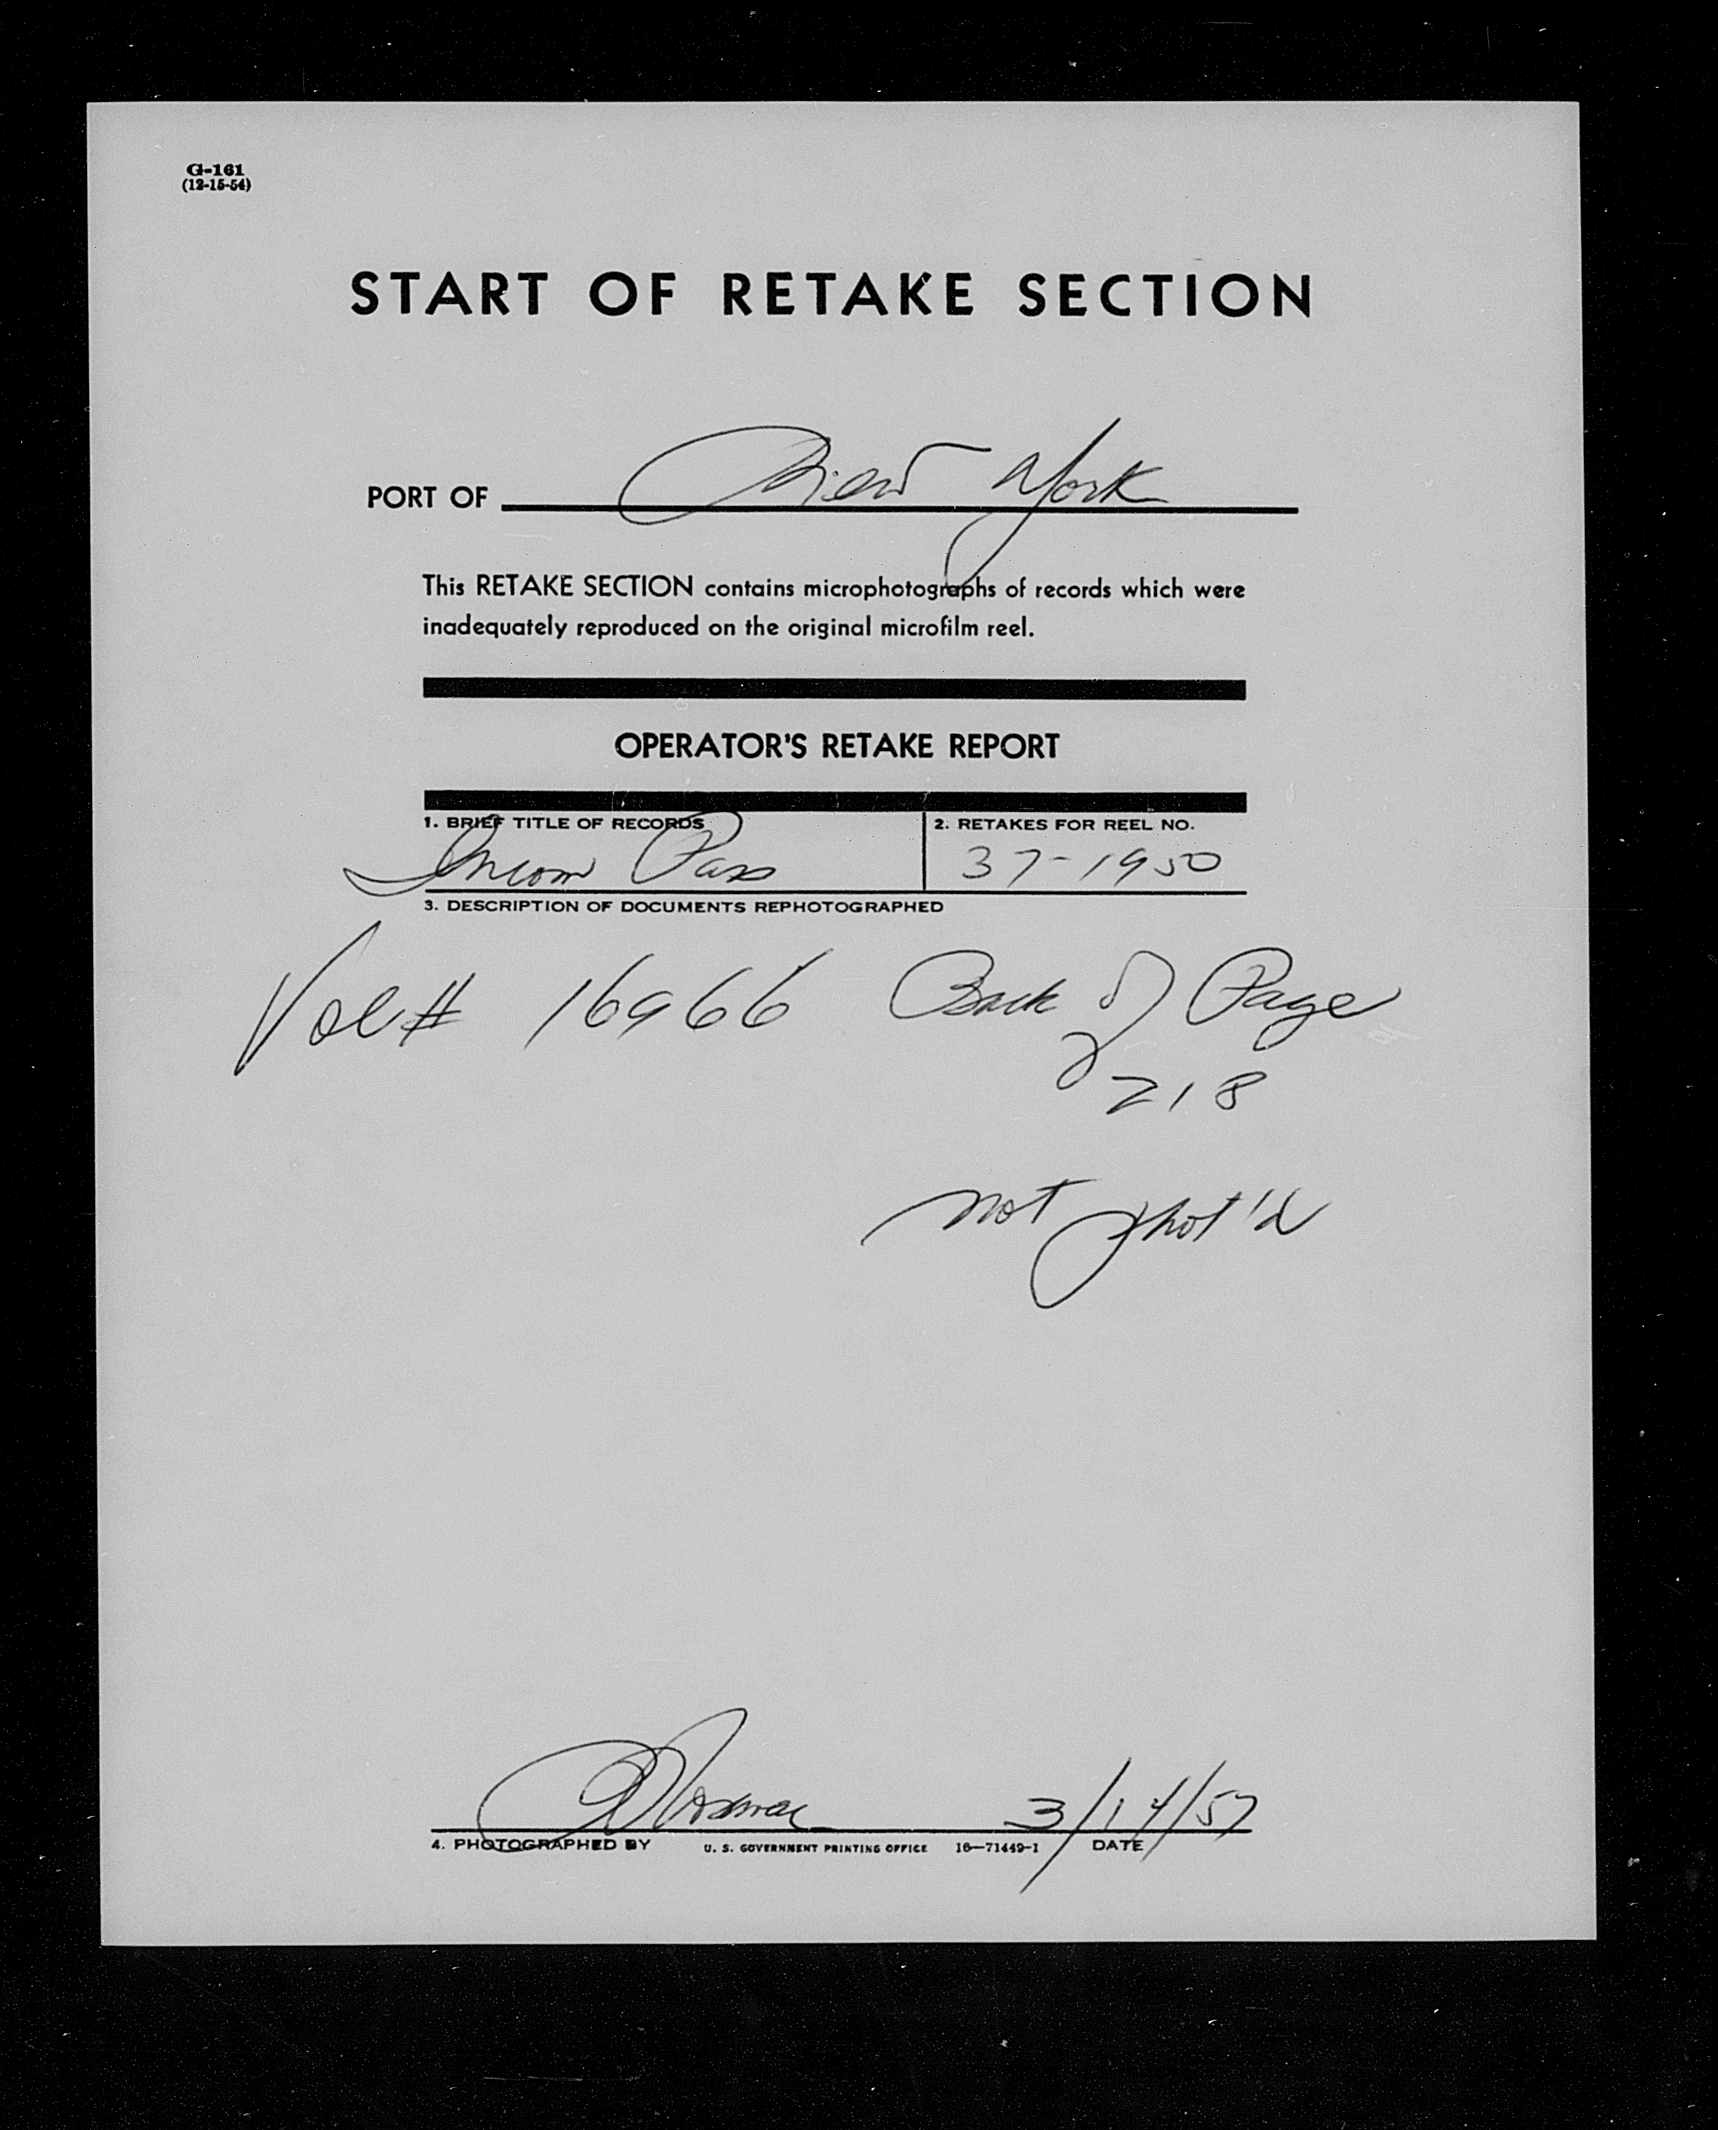 G-161
(12-15-54)
START OF RETAKE SECTION
PORT OF New York
This RETAKE SECTION contains microphotographs of records which were
inadequately reproduced on the original microfilm reel.
OPERATOR'S RETAKE REPORT
1. BRIEF TITLE OF RECORDS
Incom Pass
2. RETAKES FOR REEL NO.
37-1950
3. DESCRIPTION OF DOCUMENTS REPHOTOGRAPHED
Vol# 16966 Back of Page
218
not phot'd
3/14/57
4. PHOTOGRAPHED BY U. S. GOVERNMENT PRINTING OFFICE 16—71449-1 DATE